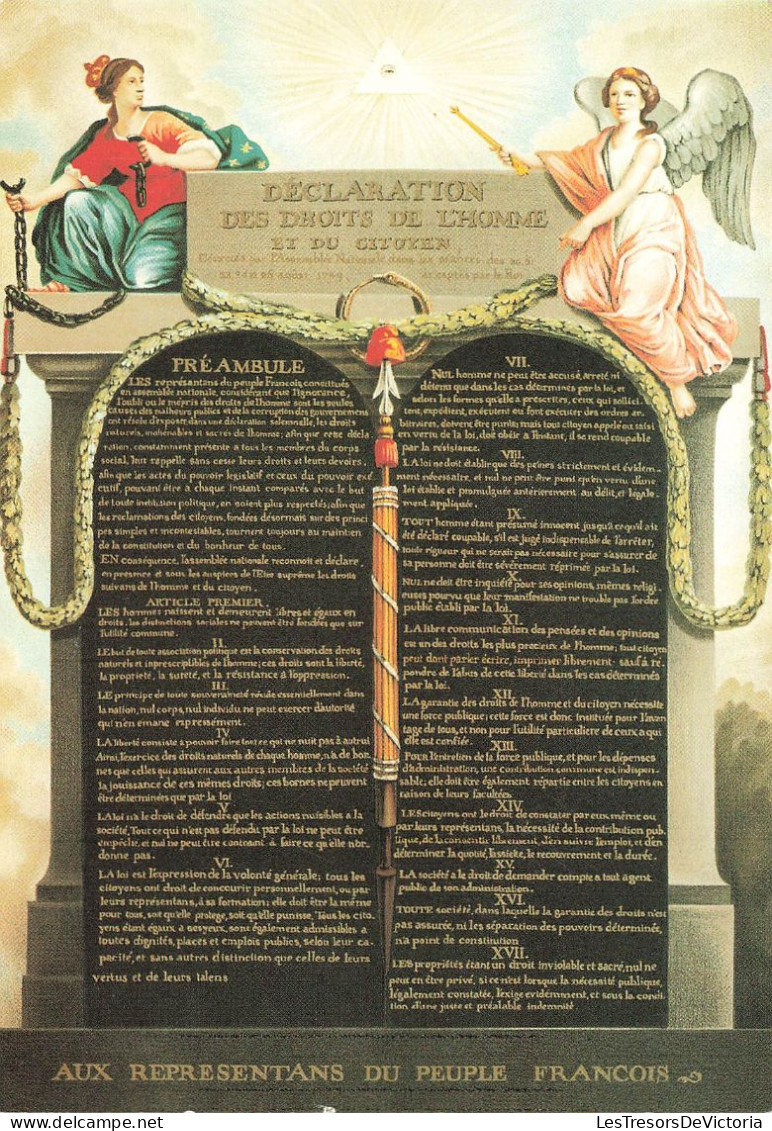 DÉCLARATION
DES DROITS DE L'HOMME
ET DU CITOYEN
Décrétés par l'Assemblée Nationale dans les séances des 20, 21,
23, 24 et 26 août 1789, acceptés par le Roi
PRÉAMBULE
LES représentans du peuple François, constitués
en assemblée nationale, considérant que l'ignorance,
l'oubli ou le mépris des droits de l'homme sont les seules
causes des malheurs publics et de la corruption des gouvernemens
ont résolu d'exposer, dans une déclaration solemnelle, les droits
naturels, inaliénables et sacrés de l'homme; afin que cette décla
ration, constamment présente à tous les membres du corps
social, leur rappelle sans cesse leurs droits et leurs devoirs,
afin que les actes du pouvoir législatif et ceux du pouvoir exé
cutif, pouvant être à chaque instant comparés avec le but
de toute institution politique, en soient plus respectés; afin que
les réclamations des citoyens, fondées désormais sur des princi
pes simples et incontestables, tournent toujours au maintien
de la constitution et du bonheur de tous.
EN conséquence, l'assemblée nationale reconnoit et déclare,
en presence et sous les auspices de l'Etre suprême les droits
suivans de l'homme et du citoyen.
ARTICLE PREMIER.
LES hommes naissent et demeurent libres et égaux en
droits. les distinctions sociales ne peuvent être fondées que sur
l'utilité commune.
II.
LE but de toute association politique est la conservation des droits
naturels et inprescriptibles de l'homme; ces droits sont la liberté,
la propriété, la sureté, et la résistance à l'oppression.
III.
LE principe de toute souveraineté réside essentiellement dans
la nation, nul corps, nul individu ne peut exercer d'autorité
qui n'en émane expressément.
IV.
LA liberté consiste à pouvoir faire tout ce qui ne nuit pas à autrui
Ainsi, l'exercice des droits naturels de chaque homme, n'a de bor-
nes que celles qui assurent aux autres membres de la société
la jouissance de ces mêmes droits; ces bornes ne peuvent
être déterminées que par la loi
V.
LA loi n'a le droit de défendre que les actions nuisibles à la
société. Tout ce qui n'est pas défendu par la loi ne peut être
empêché, et nul ne peut être contraint à faire ce qu'elle n'or-
donne pas.
VI.
LA loi est l'expression de la volonté générale; tous les
citoyens ont droit de concourir personnellement, ou par
leurs représentans, à sa formation; elle doit être la même
pour tous, soit qu'elle protege, soit qu'elle punisse. Tous les cito
yens étant égaux à ses yeux, sont également admissibles à
toutes dignités, places et emplois publics, selon leur ca-
pacité, et sans autres distinction que celles de leurs
vertus et de leurs talens
VII.
NUL homme ne peut être accusé, arreté, ni
détenu que dans les cas déterminés par la loi, et
selon les formes qu'elle a prescrites, ceux qui sollici
tent, expédient, exécutent ou font exécuter des ordres ar-
bitraires, doivent être punis; mais tout citoyen appelé ou saisi
en vertu de la loi, doit obéir à l'instant, il se rend coupable
par la résistance.
VIII.
LA loi ne doit établir que des peines strictement et évidem-
ment nécessaire, et nul ne peut être puni qu'en vertu d'une
loi établie et promulguée antérierement au délit, et légale-
ment appliquée.
IX.
TOUT homme étant présumé innocent jusqu'à ce qu'il ait
été déclaré coupable, s'il est jugé indispensable de l'arrêter,
toute rigueur qui ne serait pas nécessaire pour s'assurer de
sa personne doit être sévérement réprimée par la loi.
X.
NUL ne doit être inquiété pour ses opinions, mêmes religi
euses pourvu que leur manifestation ne trouble pas l'ordre
public établi par la loi.
XI.
LA libre communication des pensées et des opinions
est un des droits les plus precieux de l'homme; tout citoyen
peut dont parler, écrire, imprimer librement: sauf à ré
pondre de l'abus de cette liberté dans les cas déterminés
par la loi.
XII.
LA garantie des droits de l'homme et du citoyen nécessite
une force publique; cette force est donc instituée pour l'avan
tage de tous, et non pour l'utilité particuliere de ceux a qui
elle est confiée.
XIII.
POUR l'entretien de la force publique, et pour les dépenses
d'administration, une contribution commune est indispen-
sable; elle doit être également répartie entre les citoyens en
raison de leurs facultées.
XIV.
LES citoyens ont le droit de constater par eux même ou
par leurs représentans, la nécessité de la contribution pub
lique, de la consentir librement, d'en suivre l'emploi, et d'en
déterminer la quotité, l'assiette, le recouvrement et la durée.
XV.
LA société a le droit de demander compte a tout agent
public de son administration.
XVI.
TOUTE société, dans laquelle la garantie des droits n'est
pas assurée, ni les séparation des pouvoirs déterminée,
n'a point de constitution
XVII.
LES propriétés étant un droit inviolable et sacré, nul ne
peut en être privé, si ce n'est lorsque la nécessité publique,
légalement constatée, l'exige evidemment, et sous la condi
tion d'une juste et préalable indemnité.
AUX REPRESENTANS DU PEUPLE FRANCOIS
LesTresorsDeVictoria